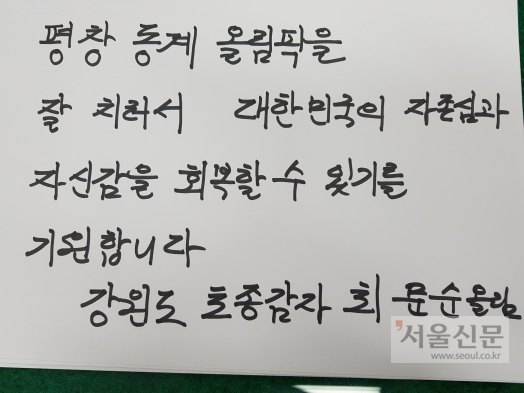 평창 동계 올림픽을
잘 치러서 대한민국의 자존심과
자신감을 회복할 수 있기를
기원합니다
강원도 토종감자 최 문순올림
서울신문
www.seoul.co.kr